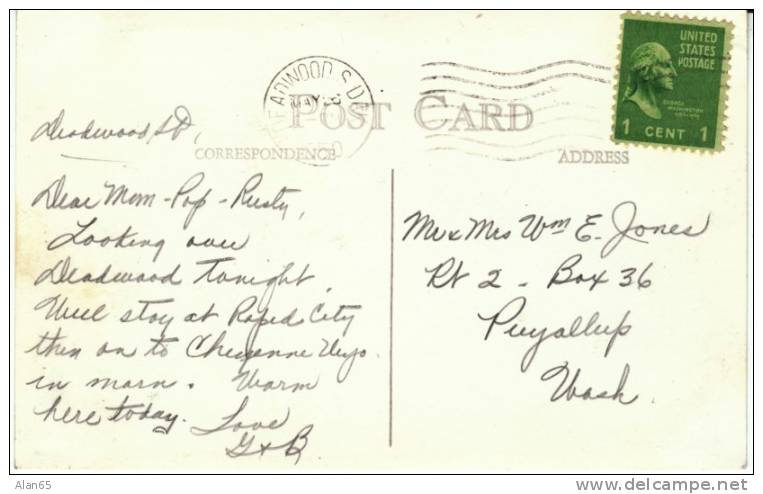 UNITED
STATES
POSTAGE
GEORGE
WASHINGTON
1 CENT 1
DEADWOOD S.D.
MAY 8
POST CARD
CORRESPONDENCE
ADDRESS
Deadwood SD,
Dear Mom - Pop - Rusty,
Looking over
Deadwood tonight.
Will stay at Rapid City
then on to Cheyenne Wyo.
in morn. Warm
here today. Love
G & B
Mr & Mrs Wm E. Jones
Rt 2 - Box 36
Puyallup
Wash.
Alan65
http://www.delcampe.net